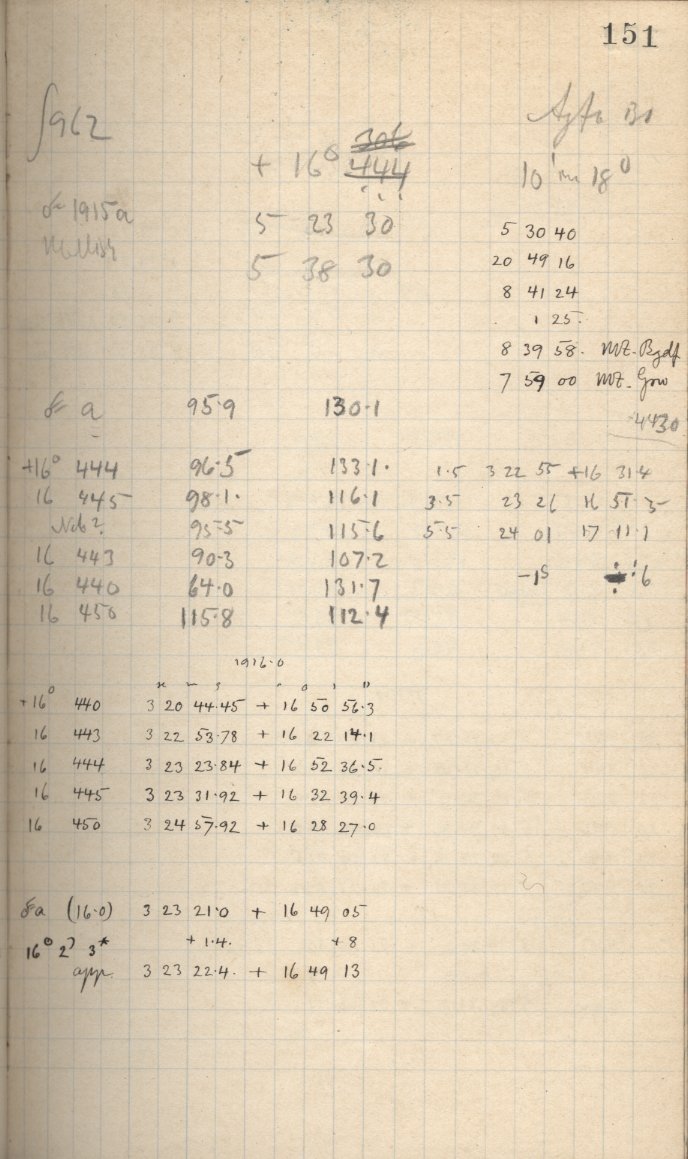 151
962
306
+ 16° 444
Agfa
10 m 18°
1915a
5 23 30
5 38 30
5 30 40
20 49 16
8 41 24
1 25.
8 39 58. MZ. Bgdf
7 59 00 MZ. Grw
4430
a 95.9 130.1
+16° 444 96.5 133.1. 1.5 3 22 55 +16 31.4
16 445 98.1. 116.1 3.5 23 26 16 51.5
Neb? 95.5 115.6 5.5 24 01 17 11.1
16 443 90.3 107.2
16 440 64.0 131.7 -1s 6
16 450 115.8 112.4
1916.0
h m s ° ' "
+16° 440 3 20 44.45 + 16 50 56.3
16 443 3 22 53.78 + 16 22 14.1
16 444 3 23 23.84 + 16 52 36.5
16 445 3 23 31.92 + 16 32 39.4
16 450 3 24 57.92 + 16 28 27.0
a (16.0) 3 23 21.0 + 16 49 05
16° 3* + 1.4. + 8
app. 3 23 22.4. + 16 49 13